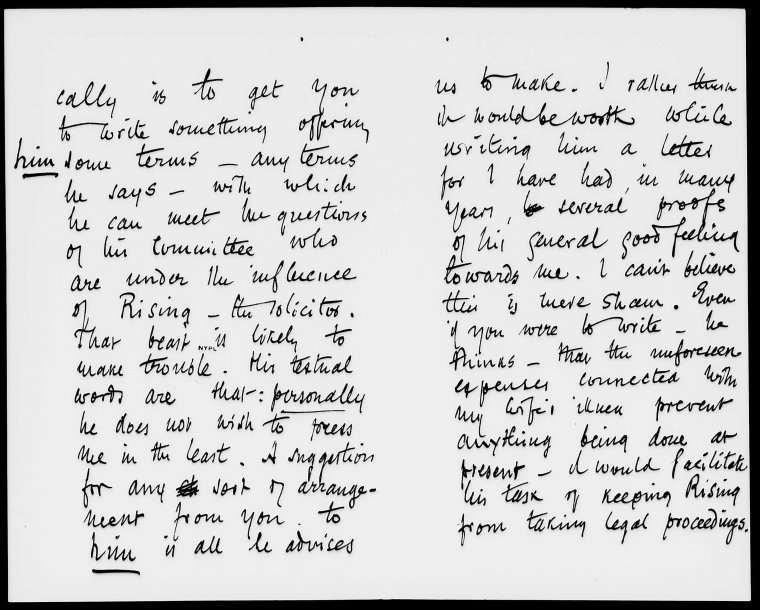 cally is to get you
to write something offering
him some terms — any terms
he says — with which
he can meet the questions
of his Committee who
are under the influence
of Rising — the solicitor.
That beast is likely to
NYPL
make trouble. His textual
words are that: personally
he does not wish to press
me in the least. A suggestion
for any sort of arrange-
ment from you to
him is all he advises
us to make. I rather think
it would be worth while
writing him a letter
for I have had, in many
years, several proofs
of his general good feeling
towards me. I can't believe
this is mere sham. Even
if you were to write — he
thinks — that the unforeseen
expenses connected with
my wife's illness prevent
anything being done at
present — it would facilitate
his task of keeping Rising
from taking legal proceedings.